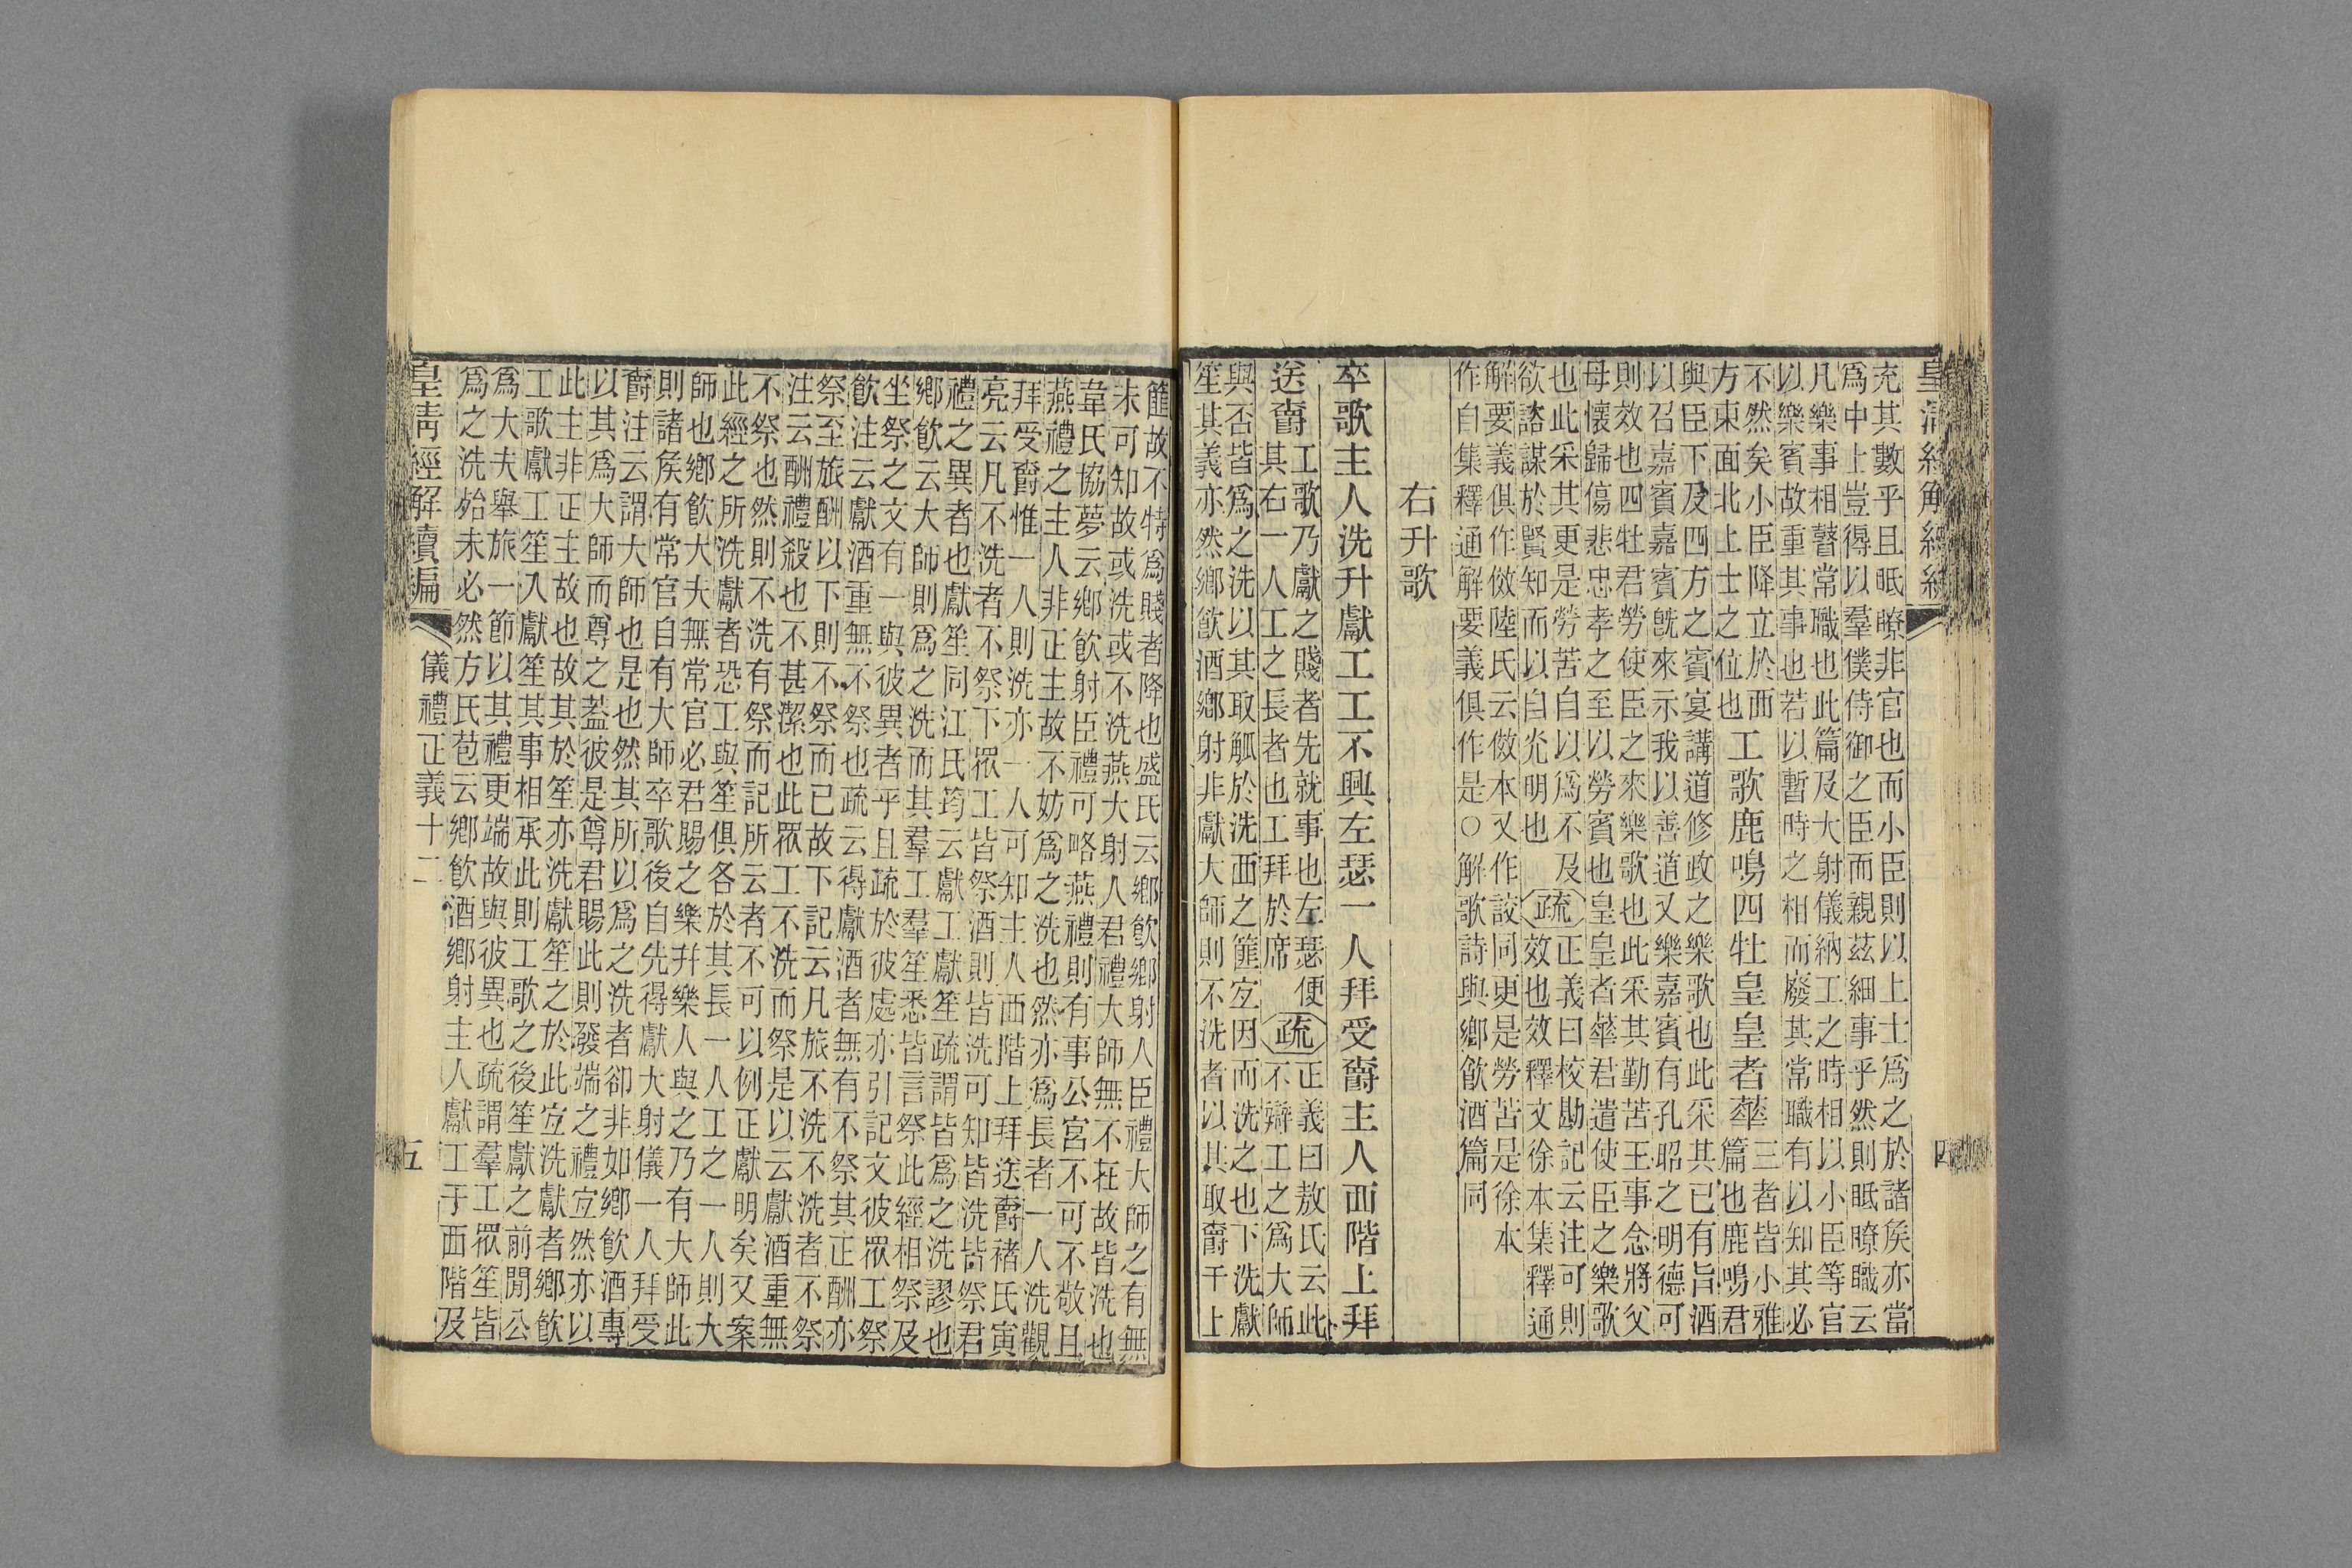 充其數乎且眂瞭非官也而小臣則以上士爲之於諸矦亦當
爲中上豈得以羣僕侍御之臣而親茲細事乎然則眂瞭職云
凡樂事相瞽常職也此篇及大射儀納工之時相以小臣等官
以樂賓故重其事也若以暫時之相而廢其常職有以知其必
不然矣小臣降立於西
方東面北上士之位也
工歌鹿鳴四牡皇皇者華
三者皆小雅
篇也鹿鳴君
與臣下及四方之賓宴講道修政之樂歌也此采其已有旨酒
以召嘉賓嘉賓旣來示我以善道又樂嘉賓有孔昭之明德可
則效也四牡君勞使臣之來樂歌也此采其勤苦王事念將父
母懷歸傷悲忠孝之至以勞賓也皇皇者華君遣使臣之樂歌
也此采其更是勞苦自以爲不及
欲諮謀於賢知而以自光明也
疏
正義曰校勘記云注可則
效也效釋文徐本集釋通
解要義俱作傚陸氏云傚本又作詨同更是勞苦是徐本
作自集釋通解要義俱作是○解歌詩與鄉飮酒篇同
右升歌
卒歌主人洗升獻工工不興左瑟一人拜受爵主人西階上拜
送爵
工歌乃獻之賤者先就事也左瑟便
其右一人工之長者也工拜於席
疏
正義曰敖氏云此
不辯工之爲大師
與否皆爲之洗以其取觚於洗西之篚宐因而洗之也下洗獻
笙其義亦然鄉飮酒鄉射非獻大師則不洗者以其取爵于上
四
篚故不特爲賤者降也盛氏云鄉飮鄉射人臣禮大師之有無
未可知故或洗或不洗燕大射人君禮大師無不在故皆洗也
韋氏協夢云鄉飮射臣禮可略燕禮則有事公宮不可不敬且
燕禮之主人非正主故不妨爲之洗也然亦爲長者一人洗觀
拜受爵惟一人則洗亦一人可知主人西階上拜送爵褚氏寅
亮云凡不洗者不祭下眾工皆祭酒則皆洗可知皆洗皆祭君
禮之異者也獻笙同江氏筠云獻工獻笙疏謂皆爲之洗謬也
鄉飮云大師則爲之洗而其羣工羣笙悉皆言祭此經相祭及
坐祭之文有一與彼異者乎且疏於彼處亦引記文彼眾工祭
飮注云獻酒重無不祭也疏云得獻酒者無有不祭其正酬亦
祭至旅酬以下則不祭而已故下記云凡旅不洗不洗者不祭
注云酬禮殺也不甚潔也此眾工不洗而祭是以云獻酒重無
不祭也然則不洗有祭而記所云者不可以例正獻明矣又案
此經之所洗獻者恐工與笙俱各於其長一人工之一人則大
師也鄉飮大夫無常官必君賜之樂并樂人與之乃有大師此
則諸矦有常官自有大師卒歌後自先得獻大射儀一人拜受
爵注云謂大師也是也然其所以爲之洗者卻非如鄉飮酒專
以其爲大師而尊之葢彼是尊君賜此則發端之禮宐然亦以
此主非正主故也故其於笙亦洗獻笙之於此宐洗獻者鄉飮
工歌獻工笙入獻笙其事相承此則工歌之後笙獻之前閒公
爲大夫舉旅一節以其禮更端故與彼異也疏謂羣工眾笙皆
爲之洗殆未必然方氏苞云鄉飮酒鄉射主人獻工于西階及
皇清經解續編
儀禮正義十二
五